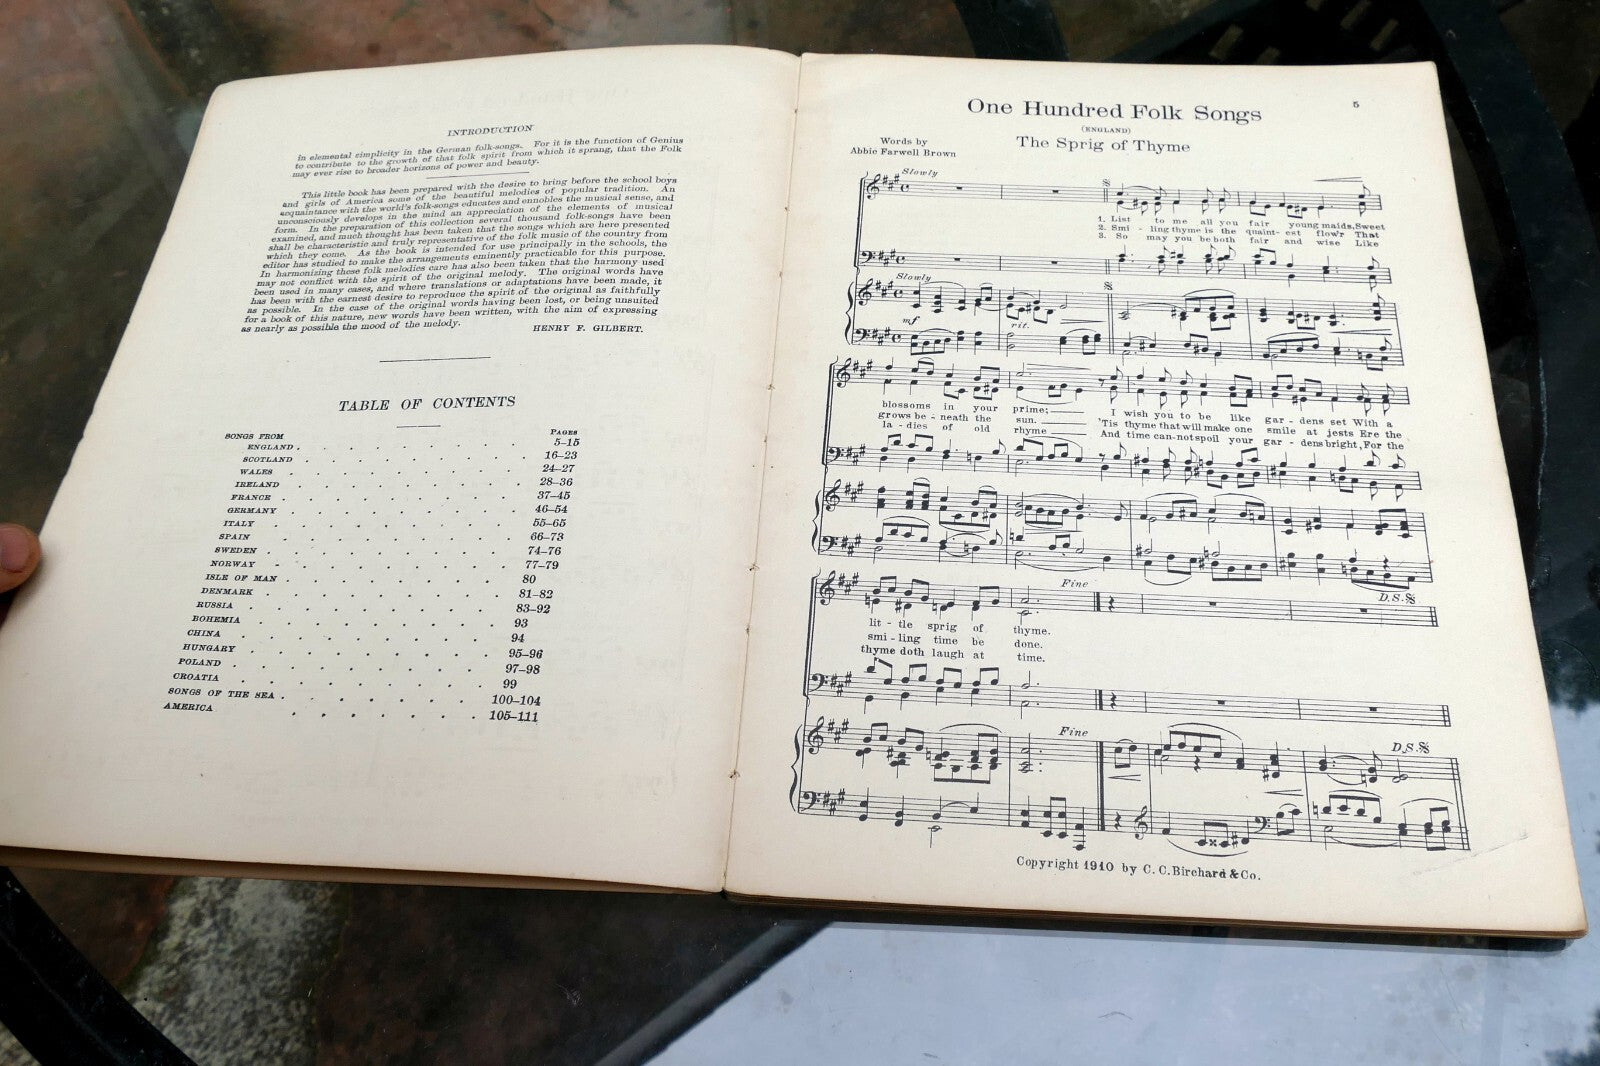 INTRODUCTION
in elemental simplicity in the German folk-songs. For it is the function of Genius
to contribute to the growth of that folk spirit from which it sprang, that the Folk
may ever rise to broader horizons of power and beauty.
This little book has been prepared with the desire to bring before the school boys
and girls of America some of the beautiful melodies of popular tradition. An
acquaintance with the world's folk-songs educates and ennobles the musical sense, and
unconsciously develops in the mind an appreciation of the elements of musical
form. In the preparation of this collection several thousand folk-songs have been
examined, and much thought has been taken that the songs which are here presented
shall be characteristic and truly representative of the folk music of the country from
which they come. As the book is intended for use principally in the schools, the
editor has studied to make the arrangements eminently practicable for this purpose.
In harmonizing these folk melodies care has also been taken that the harmony used
may not conflict with the spirit of the original melody. The original words have
been used in many cases, and where translations or adaptations have been made, it
has been with the earnest desire to reproduce the spirit of the original as faithfully
as possible. In the case of the original words having been lost, or being unsuited
for a book of this nature, new words have been written, with the aim of expressing
as nearly as possible the mood of the melody.
HENRY F. GILBERT.
TABLE OF CONTENTS
SONGS FROM PAGES
ENGLAND . . . . . . . . 5–15
SCOTLAND . . . . . . . . 16–23
WALES . . . . . . . . 24–27
IRELAND . . . . . . . . 28–36
FRANCE . . . . . . . . 37–45
GERMANY . . . . . . . . 46–54
ITALY . . . . . . . . 55–65
SPAIN . . . . . . . . 66–73
SWEDEN . . . . . . . . 74–76
NORWAY . . . . . . . . 77–79
ISLE OF MAN . . . . . . . . 80
DENMARK . . . . . . . . 81–82
RUSSIA . . . . . . . . 83–92
BOHEMIA . . . . . . . . 93
CHINA . . . . . . . . 94
HUNGARY . . . . . . . . 95–96
POLAND . . . . . . . . 97–98
CROATIA . . . . . . . . 99
SONGS OF THE SEA . . . . . . . . 100–104
AMERICA . . . . . . . 105–111
5
One Hundred Folk Songs
(ENGLAND)
The Sprig of Thyme
Words by
Abbie Farwell Brown
Slowly
1. List to me all you fair young maids, Sweet
2. Smi - ling thyme is the quaint-est flow'r That
3. So may you be both fair and wise Like
Slowly
mf rit.
blossoms in your prime; I wish you to be like gar-dens set With a
grows be-neath the sun. 'Tis thyme that will make one smile at jests Ere the
la-dies of old rhyme And time can-not spoil your gar-dens bright, For the
Fine
D.S.
lit - tle sprig of thyme.
smi-ling time be done.
thyme doth laugh at time.
Fine
D.S.
Copyright 1910 by C. C. Birchard & Co.